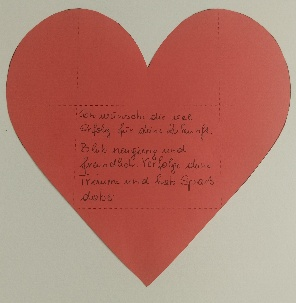 Ich wünsche dir viel
Erfolg für deine Zukunft.
Bleib neugierig und
freundlich. Verfolge deine
Träume und hab Spass
dabei